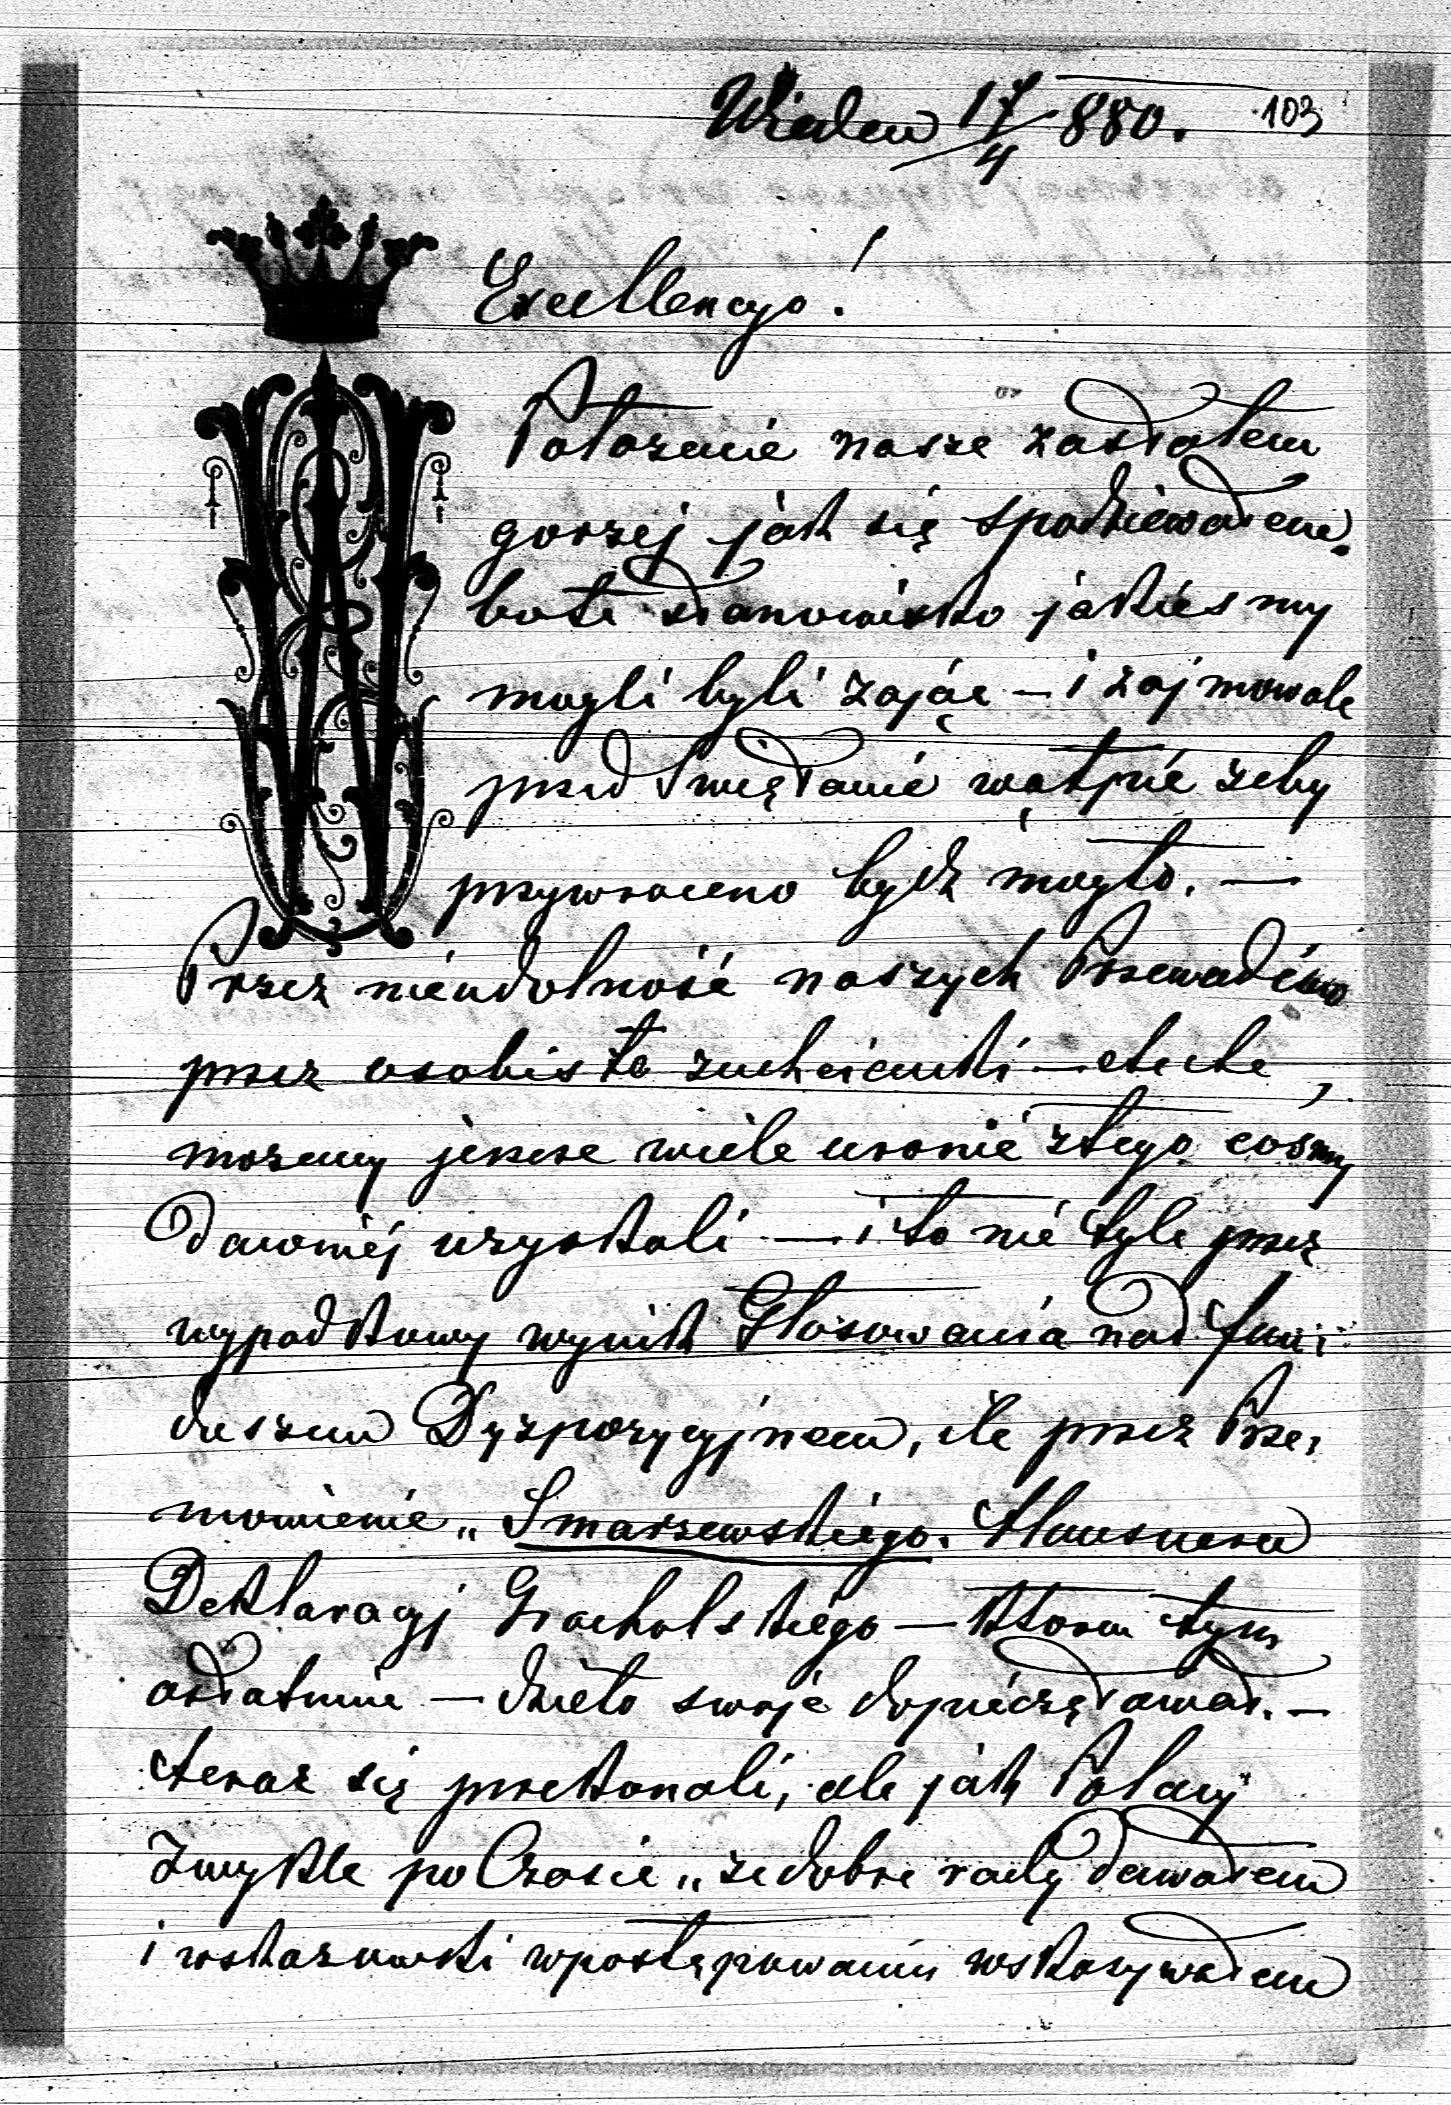 Wieden 17/4 880. 103
Excellencyo!
Położenie nasze zastałem
gorzej jak się spodziewałem.
bo te stanowisko jakieśmy
mogli byli zająć — i zajmowali
przed Swiętami wątpię żeby
przywrocono bydz mogło. —
Przez nieudolność naszych
przez osobiste zachcianki — etc etc,
możemy jeszcze wiele uronić z tego cosmy
dawniéj uzyskali — i to nie tyle przez
wypadkowy wynik Głosowania nad fun:
duszem Dyspozycyjnem, ile przez Prze:
mowienie „Smarzewskiego. Hausnera
Deklaracyj Grocholskiego — ktoren tym
ostatnim — dzieło swoje dopieczętował. —
teraz się przekonali, ale jak Polacy
Zwykle po Czasie „ze dobre rady dawałem
i wskazowki w postępowaniu wskazywałem